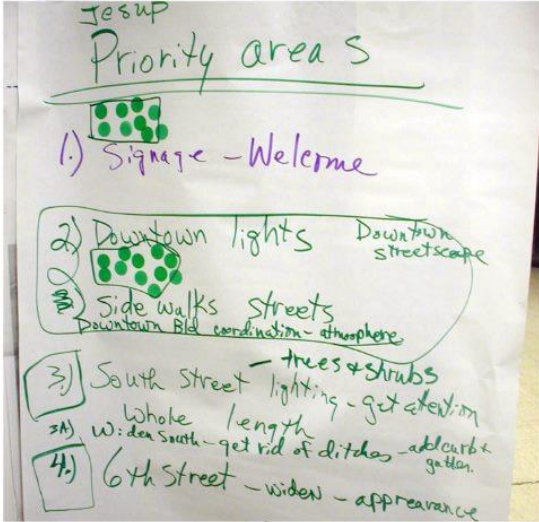 Jesup
Priority areas
1.) Signage - Welcome
2) Downtown lights
Downtown
streetscape
Side walks streets
Downtown Bld coordination - atmosphere
- trees & shrubs
3.) South street lighting - get atention
whole length
3A) Widen South - get rid of ditches - add curb &
gutter.
4.) 6th Street - widen - apprearance